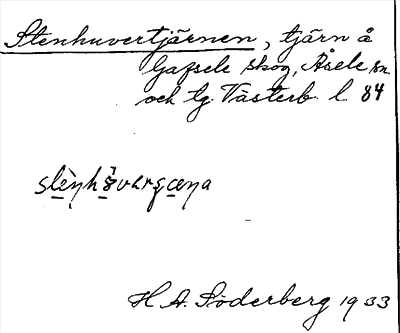 Stenhuvertjärnen, tjärn å
Gafsele skog, Åsele sn
och tg Västerb. l. 84
H A. Söderberg 1933